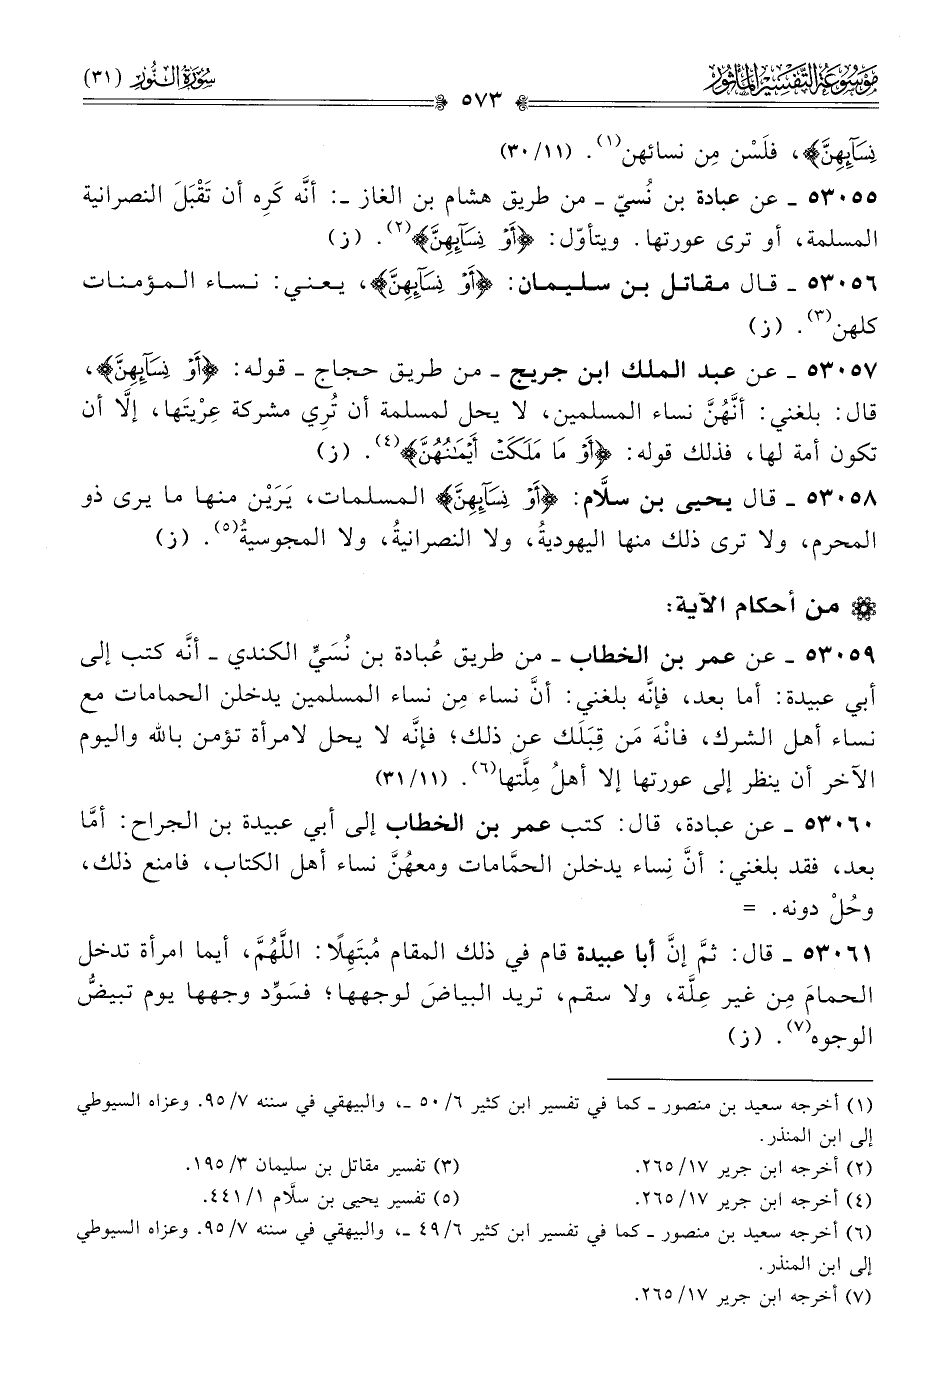 مَوْسُوعَة التَّفْسِير المَأثُور
سُورَةُ النُّور (٣١)
٥٧٣
نِسَآئِهِنَّ﴾، فلَسْن مِن نسائهن(١). (١١/ ٣٠)
٥٣٠٥٥ ـ عن عبادة بن نُسيّ ـ من طريق هشام بن الغاز ـ: أنَّه كَرِه أن تَقْبَلَ النصرانية
المسلمة، أو ترى عورتها. ويتأوّل: ﴿أَوْ نِسَآئِهِنَّ﴾(٢). (ز)
٥٣٠٥٦ ـ قال مقاتل بن سليمان: ﴿أَوْ نِسَآئِهِنَّ﴾، يعني: نساء المؤمنات
كلهن(٣). (ز)
٥٣٠٥٧ ـ عن عبد الملك ابن جريج ـ من طريق حجاج ـ قوله: ﴿أَوْ نِسَآئِهِنَّ﴾،
قال: بلغني: أنَّهُنَّ نساء المسلمين، لا يحل لمسلمة أن تُرِي مشركة عِرْيَتَها، إلَّا أن
تكون أمة لها، فذلك قوله: ﴿أَوْ مَا مَلَكَتْ أَيْمَٰنُهُنَّ﴾(٤). (ز)
٥٣٠٥٨ ـ قال يحيى بن سلَّام: ﴿أَوْ نِسَآئِهِنَّ﴾ المسلمات، يَرَيْن منها ما يرى ذو
المحرم، ولا ترى ذلك منها اليهوديةُ، ولا النصرانيةُ، ولا المجوسيةُ(٥). (ز)
من أحكام الآية:
٥٣٠٥٩ ـ عن عمر بن الخطاب ـ من طريق عُبادة بن نُسَيٍّ الكندي ـ أنَّه كتب إلى
أبي عبيدة: أما بعد، فإنَّه بلغني: أنَّ نساء مِن نساء المسلمين يدخلن الحمامات مع
نساء أهل الشرك، فانْهَ مَن قِبَلَك عن ذلك؛ فإنَّه لا يحل لامرأة تؤمن بالله واليوم
الآخر أن ينظر إلى عورتها إلا أهلُ مِلَّتها(٦). (١١/ ٣١)
٥٣٠٦٠ ـ عن عبادة، قال: كتب عمر بن الخطاب إلى أبي عبيدة بن الجراح: أمَّا
بعد، فقد بلغني: أنَّ نِساء يدخلن الحمَّامات ومعهُنَّ نساء أهل الكتاب، فامنع ذلك،
وحُلْ دونه. =
٥٣٠٦١ ـ قال: ثمَّ إنَّ أبا عبيدة قام في ذلك المقام مُبتَهِلًا: اللَّهُمَّ، أيما امرأة تدخل
الحمامَ مِن غير عِلَّة، ولا سقم، تريد البياضَ لوجهها؛ فسَوِّد وجهها يوم تبيضُّ
الوجوه(٧). (ز)
(١) أخرجه سعيد بن منصور ـ كما في تفسير ابن كثير ٦/ ٥٠ ـ، والبيهقي في سننه ٧/ ٩٥. وعزاه السيوطي
إلى ابن المنذر.
(٢) أخرجه ابن جرير ١٧/ ٢٦٥. (٣) تفسير مقاتل بن سليمان ٣/ ١٩٥.
(٤) أخرجه ابن جرير ١٧/ ٢٦٥. (٥) تفسير يحيى بن سلَّام ١/ ٤٤١.
(٦) أخرجه سعيد بن منصور ـ كما في تفسير ابن كثير ٦/ ٤٩ ـ، والبيهقي في سننه ٧/ ٩٥. وعزاه السيوطي
إلى ابن المنذر.
(٧) أخرجه ابن جرير ١٧/ ٢٦٥.